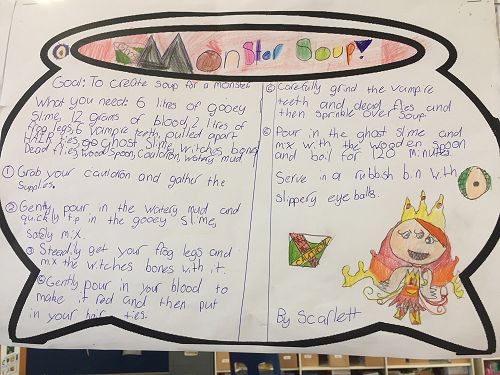 Monster Soup!
Goal: To create soup for a monster
What you need: 6 litres of gooey
slime, 12 grams of blood, 2 litres of
frog legs, 6 vampire teeth, pulled apart
hair ties, ghost slime, witches bones
Dead flies, wood spoon, cauldron, watery mud
① Grab your cauldron and gather the
supplies.
② Gently pour in the watery mud and
quickly tip in the gooey slime,
safely mix
③ Steadily get your frog legs and
mix the witches bones with it.
Gently pour in your blood to
make it red and then put
in your hair ties.
Carefully grind the vampire
teeth and dead flies and
then sprinkle over soup.
Pour in the ghost slime and
mix with the wooden spoon
and boil for 120 minutes.
Serve in a rubbish bin with
slippery eye balls.
By Scarlett